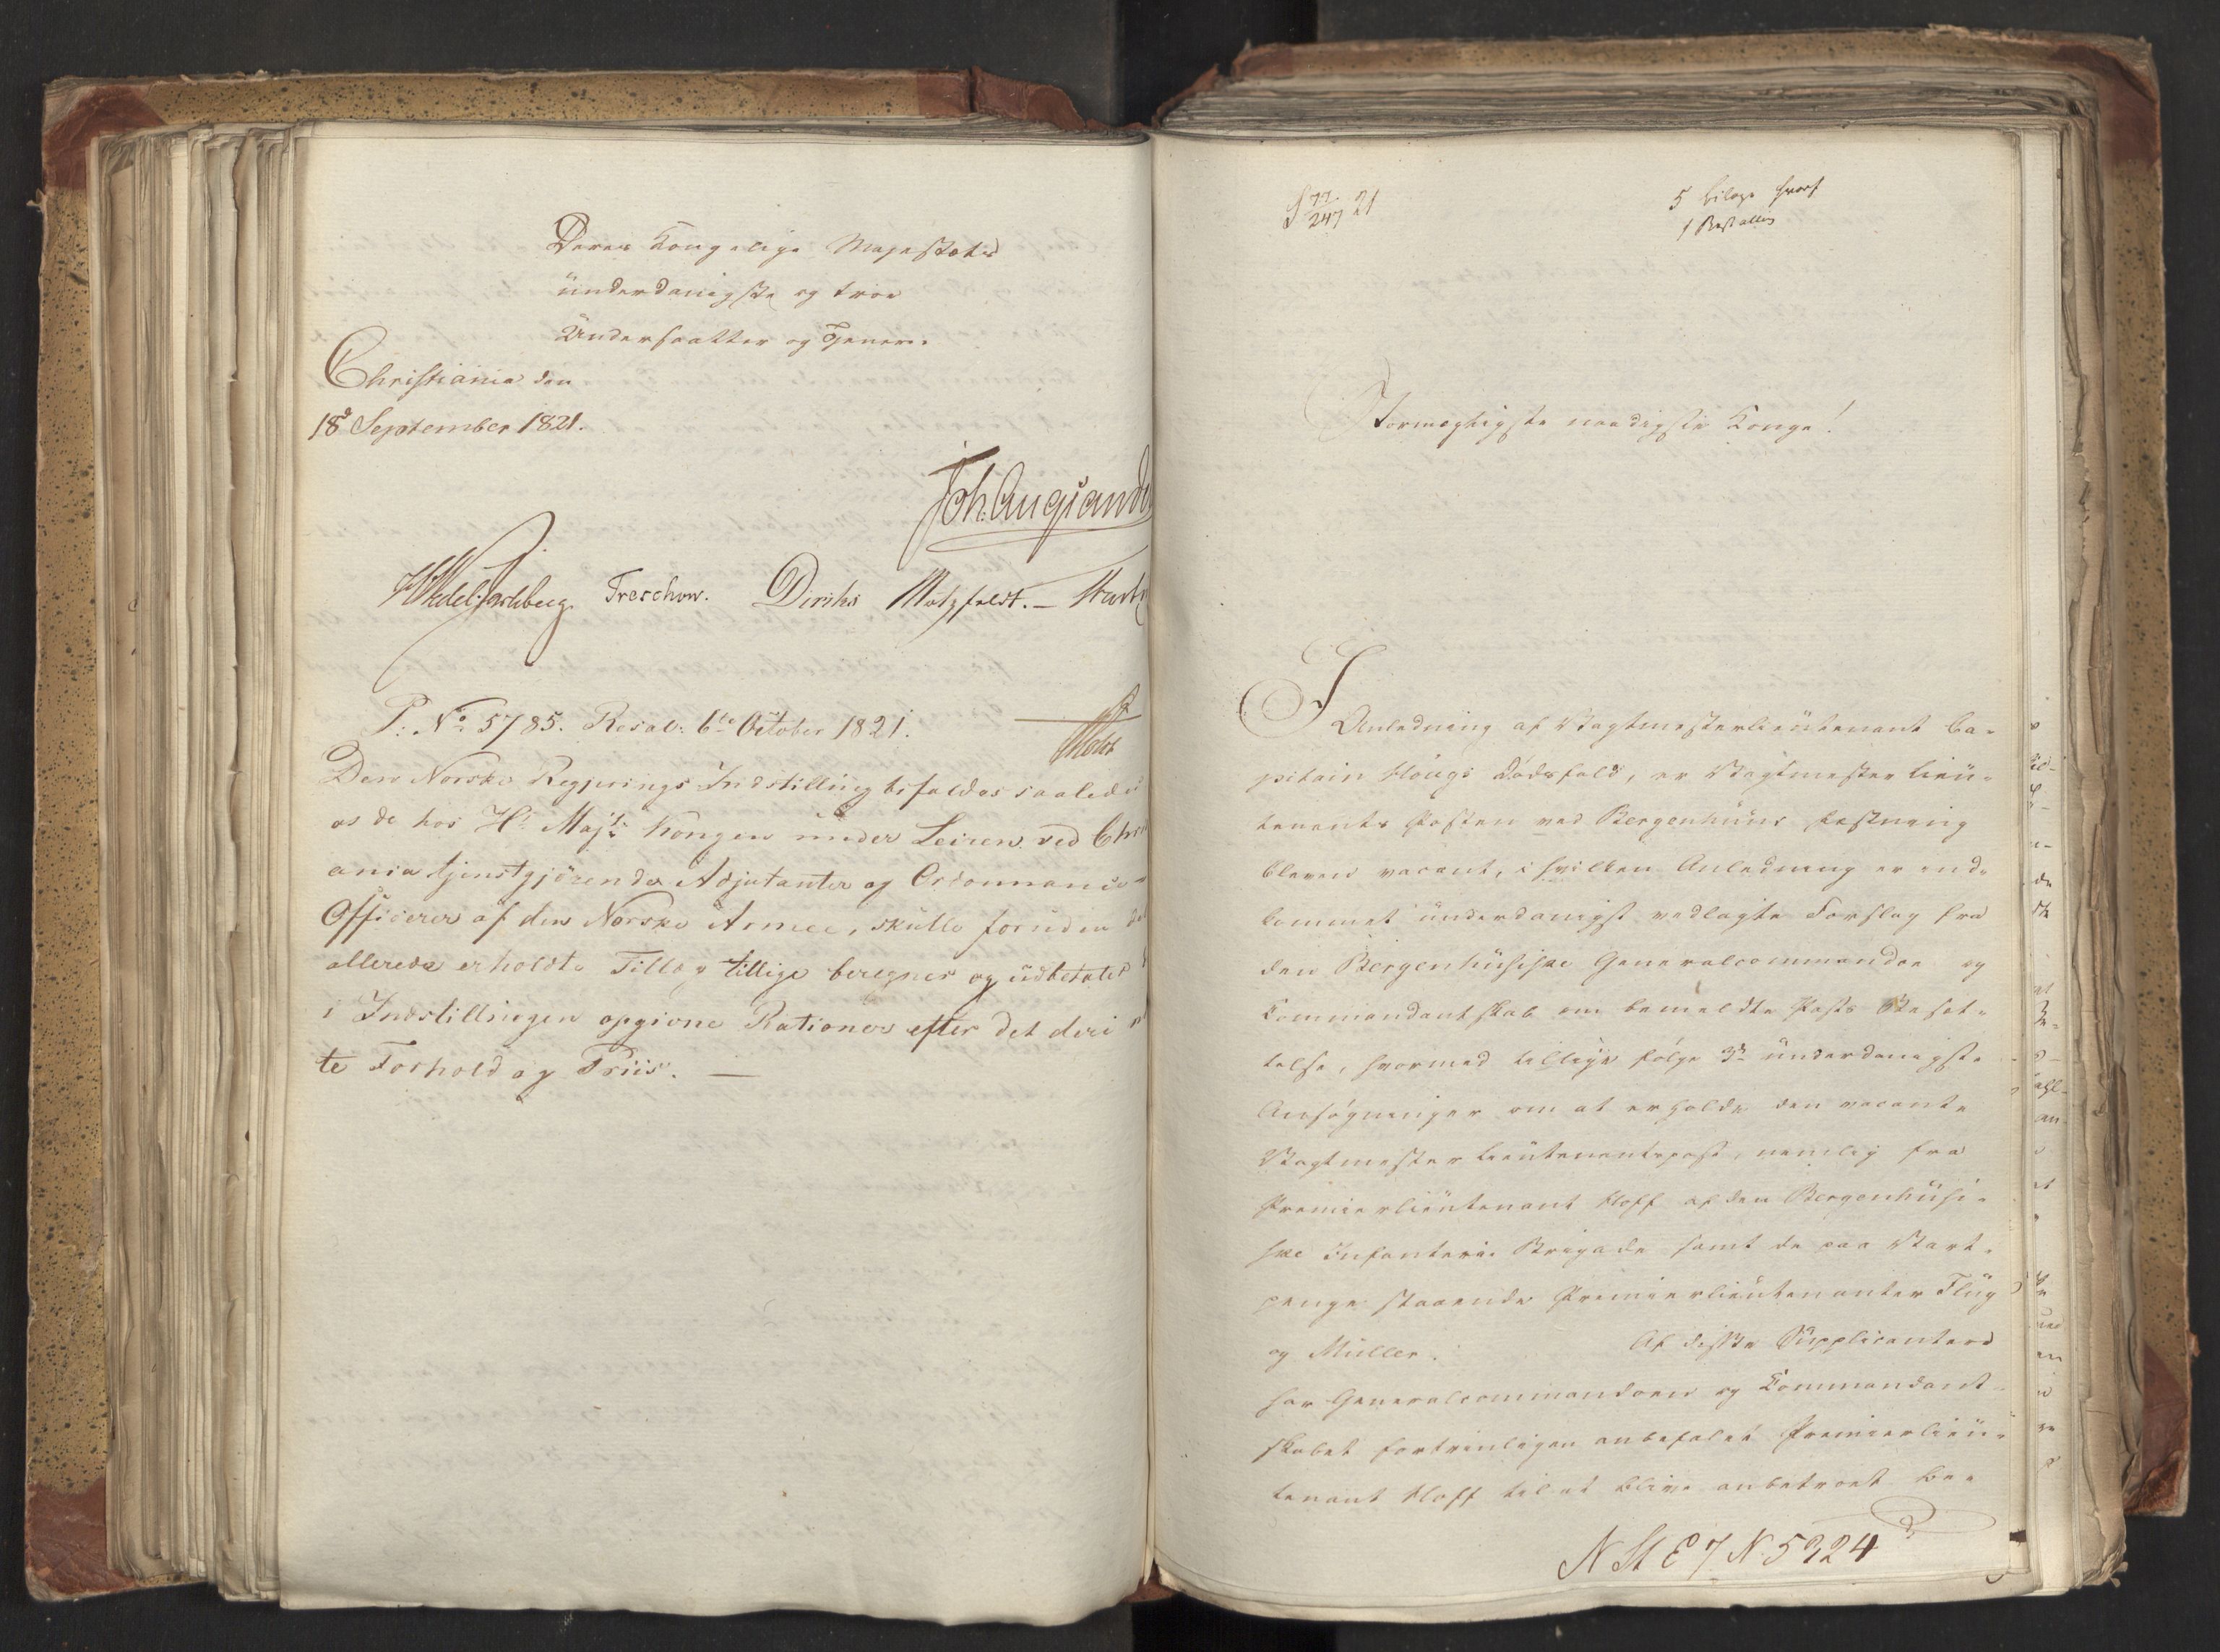 Deres Kongelige Majestæts
ünderdanigste og troe
Ündersaatter og Tjenere
Christiania den
18d September 1821.
Joh. Aug. Sande
HWedel Jarlsberg. Treschow. Diriks Motzfeldt. –
P: No 5785. Resol: 6te October 1821.
Den Norske Regjerings Indstilling bifaldes saaledes
as de hos Hs Majts Kongen ünder Leiren ved Chri
ania tjenstgjörende Adjutanter og Ordonnance
Officerer af den Norske Armee, skülle forüden det
allerede erholdte Tillæg tillige beregnes og üdbetales
i Indstillingen opgivne Rationer efter det deri
te Forhold og Priis. —
S 77/247 21
5 bilage hvoraf
1 Bestalling
Stormægtigste naadigste Konge!
I Anledning af Vagtmesterlieütenant Ca-
pitain Houges Dödsfald, er Vagtmester Lieü-
tenants Posten ved Bergenhüüs Fæstning
bleven vacant, i hvilken Anledning er ind-
kommet ünderdanigst vedlagte Forslag fra
den Bergenhüsiske Generalcommandoe og
Commandantskab om bemeldte Posts Besæt-
telse, hvormed tillige fölge 3de ünderdanigste
Ansögninger om at erholde den vacante
Vagtmesterlieütenantspost, nemlig fra
Premierlieütenant Hoff af den Bergenhüsi-
ske Infanterie Brigade samt de paa Vart-
penge staaende Premierlieütenanter Flüg
og Müller. Af disse Supplicantere
har Generalcommandoen og Commandant-
skabet fortrinligen anbefalet Premierlieü-
tenant Hoff til at blive anbetroet be-
N St E 7 N. 5324